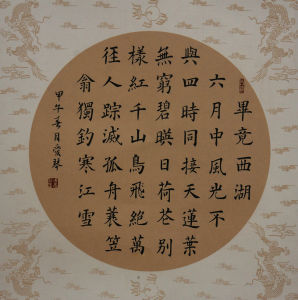 畢竟西湖
六月中風光不
與四時同接天蓮葉
無窮碧暎日荷花別
樣紅千山鳥飛絶萬
徑人踪滅孤舟蓑笠
翁獨釣寒江雪
甲午春月